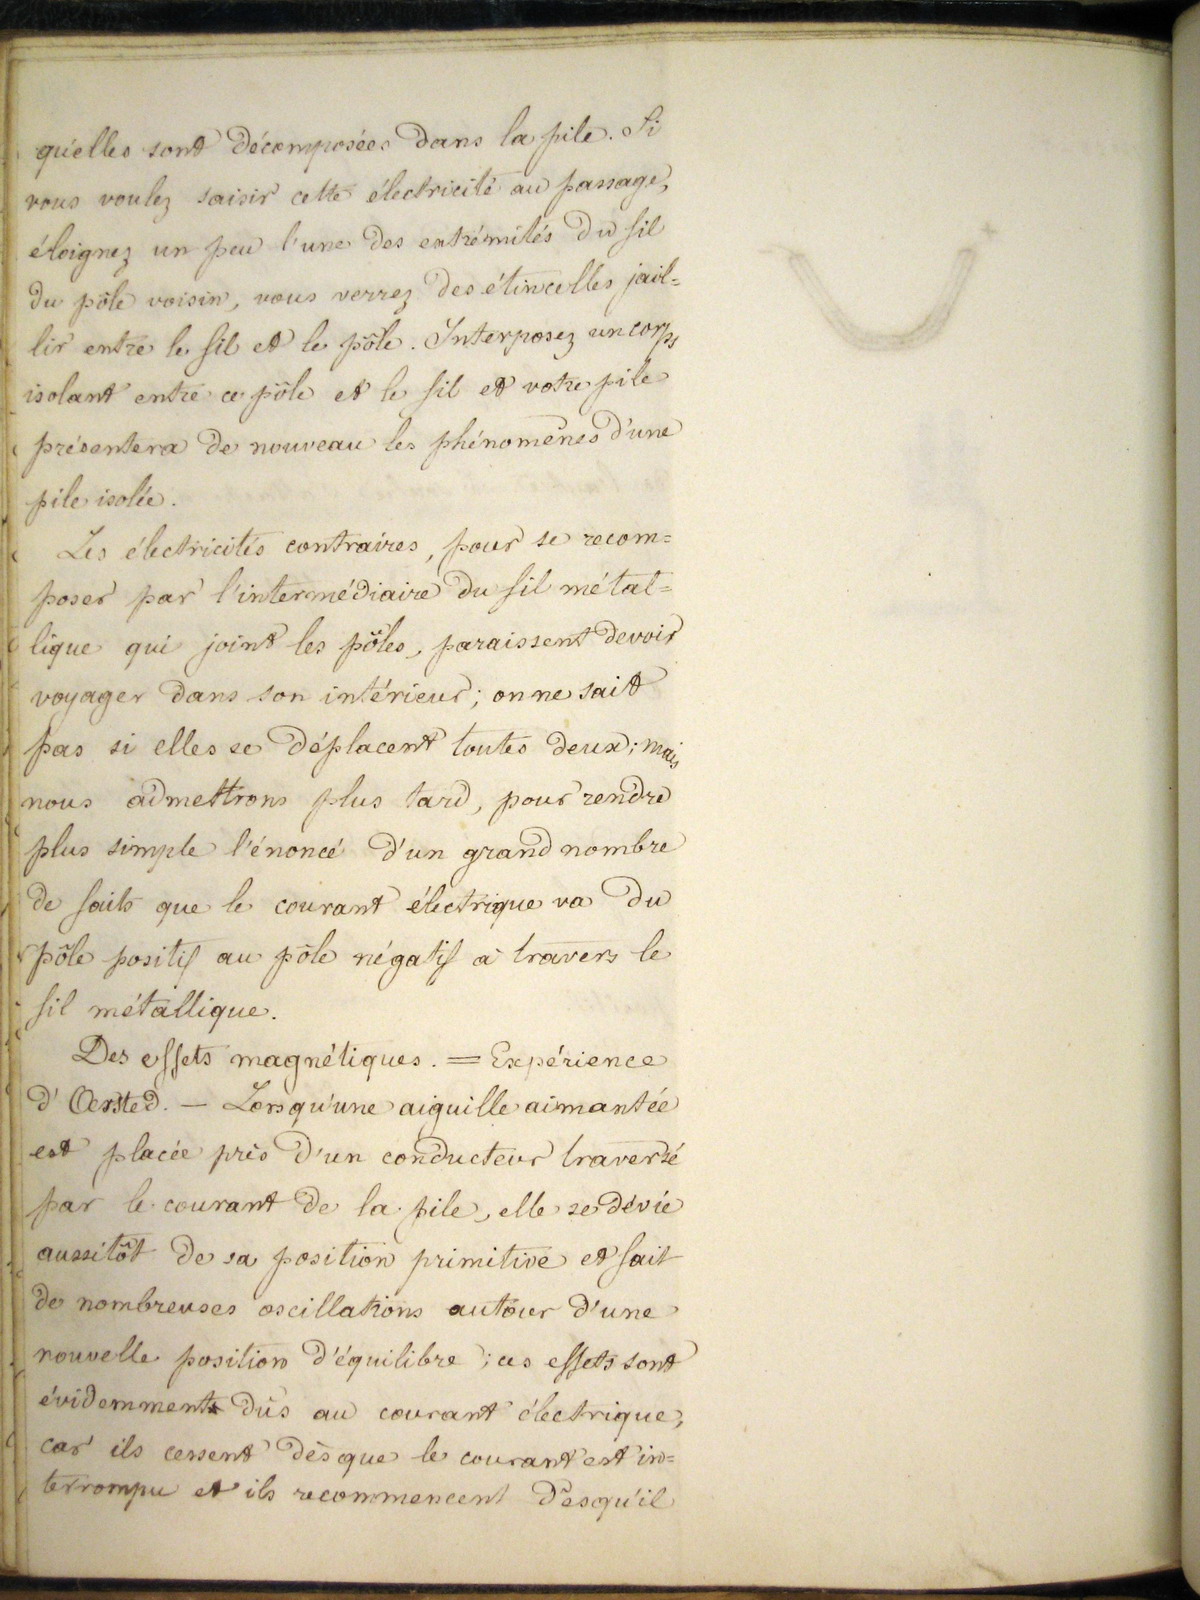 qu'elles sont décomposées dans la pile. Si
vous voulez saisir cette électricité au passage,
éloignez un peu l'une des extrémités du fil
du pôle voisin, vous verrez des étincelles jail=
lir entre le fil et le pôle. Interposez un corps
isolant entre ce pôle et le fil et votre pile
présentera de nouveau les phénomènes d'une
pile isolée.
Les électricités contraires, pour se recom=
poser par l'intermédiaire du fil métal=
lique qui joint les pôles, paraissent devoir
voyager dans son intérieur; on ne sait
pas si elles se déplacent toutes deux; mais
nous admettrons plus tard, pour rendre
plus simple l'énoncé d'un grand nombre
de faits que le courant électrique va du
pôle positif au pôle négatif à travers le
fil métallique.
Des effets magnétiques. = Expérience
d'Oersted. — Lorsqu'une aiguille aimantée
est placée près d'un conducteur traversé
par le courant de la pile, elle se dévie
aussitôt de sa position primitive et fait
de nombreuses oscillations autour d'une
nouvelle position d'équilibre; ces effets sont
évidemment dûs au courant électrique,
car ils cessent dès que le courant est in=
terrompu et ils recommencent dès qu'il